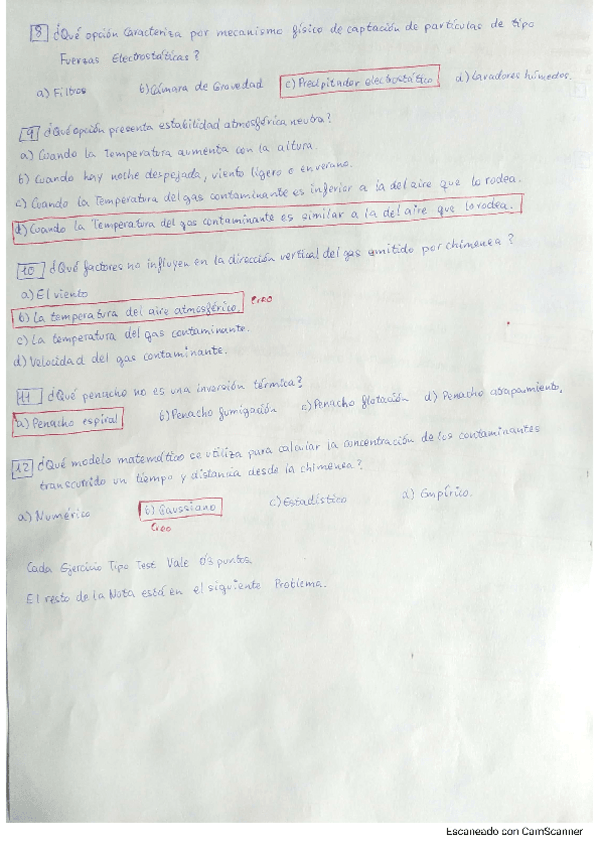 8 ¿Qué opción caracteriza por mecanismo físico de captación de partículas de tipo
Fuerzas Electrostáticas?
a) Filtros b) Cámara de Gravedad c) Precipitador electrostático d) Lavadores húmedos.
9 ¿Qué opción presenta estabilidad atmosférica neutra?
a) Cuando la Temperatura aumenta con la altura.
b) Cuando hay noche despejada, viento ligero o en verano.
c) Cuando la Temperatura del gas contaminante es inferior a la del aire que lo rodea.
d) Cuando la Temperatura del gas contaminante es similar a la del aire que lo rodea.
10 ¿Qué factores no influyen en la dirección vertical del gas emitido por chimenea?
a) El viento
b) La temperatura del aire atmosférico creo
c) La temperatura del gas contaminante.
d) Velocidad del gas contaminante.
11 ¿Qué penacho no es una inversión térmica?
a) Penacho espiral b) Penacho fumigación c) Penacho flotación d) Penacho atrapamiento.
12 ¿Qué modelo matemático se utiliza para calcular la concentración de los contaminantes
transcurrido un tiempo y distancia desde la chimenea?
a) Numérico b) Gaussiano c) Estadístico d) Empírico.
creo
Cada Ejercicio Tipo Test Vale 0'3 puntos.
El resto de la Nota está en el siguiente Problema.
Escaneado con CamScanner